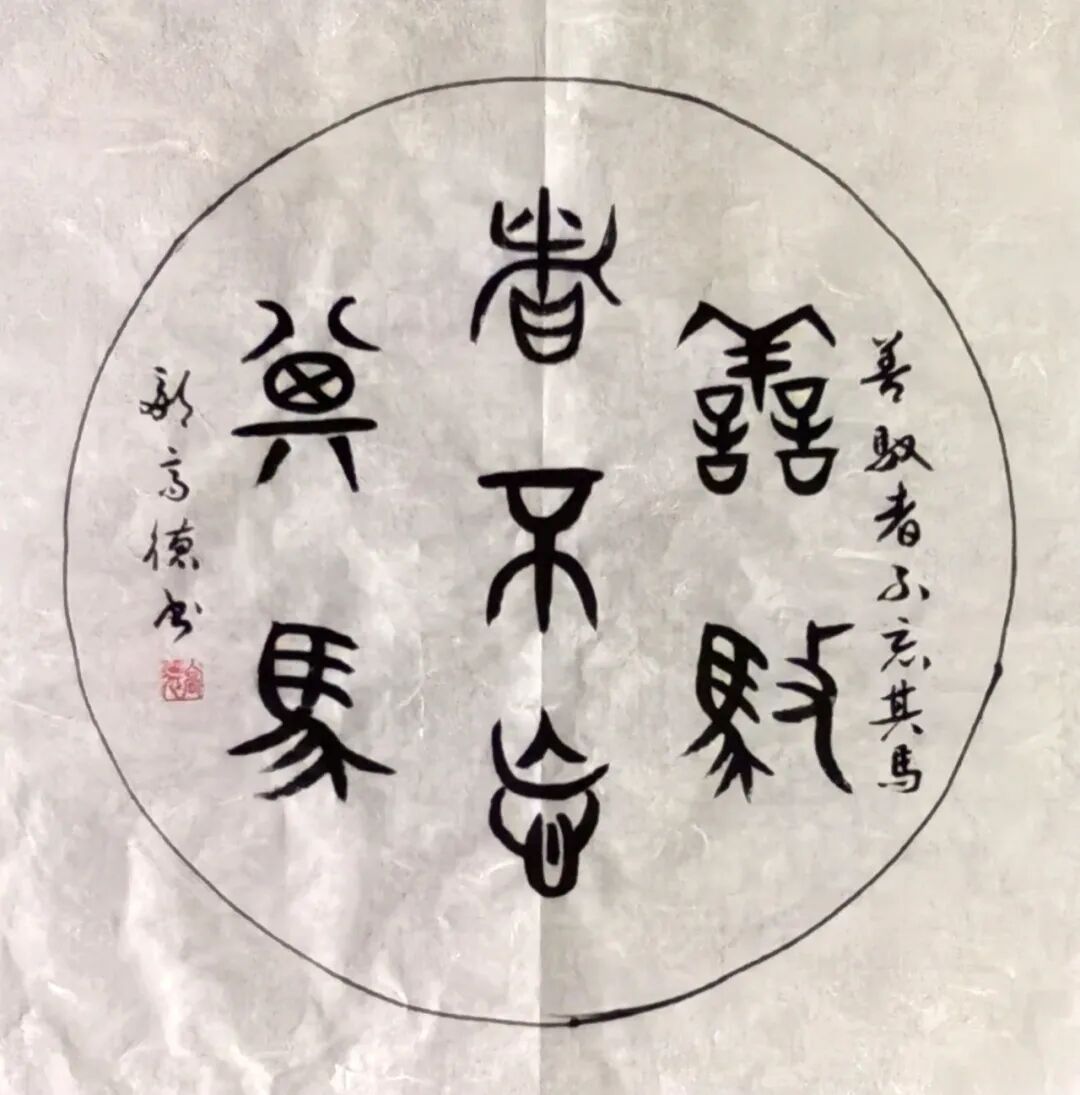 善馭者不忘其馬
善馭
者不忘
其馬
高德书